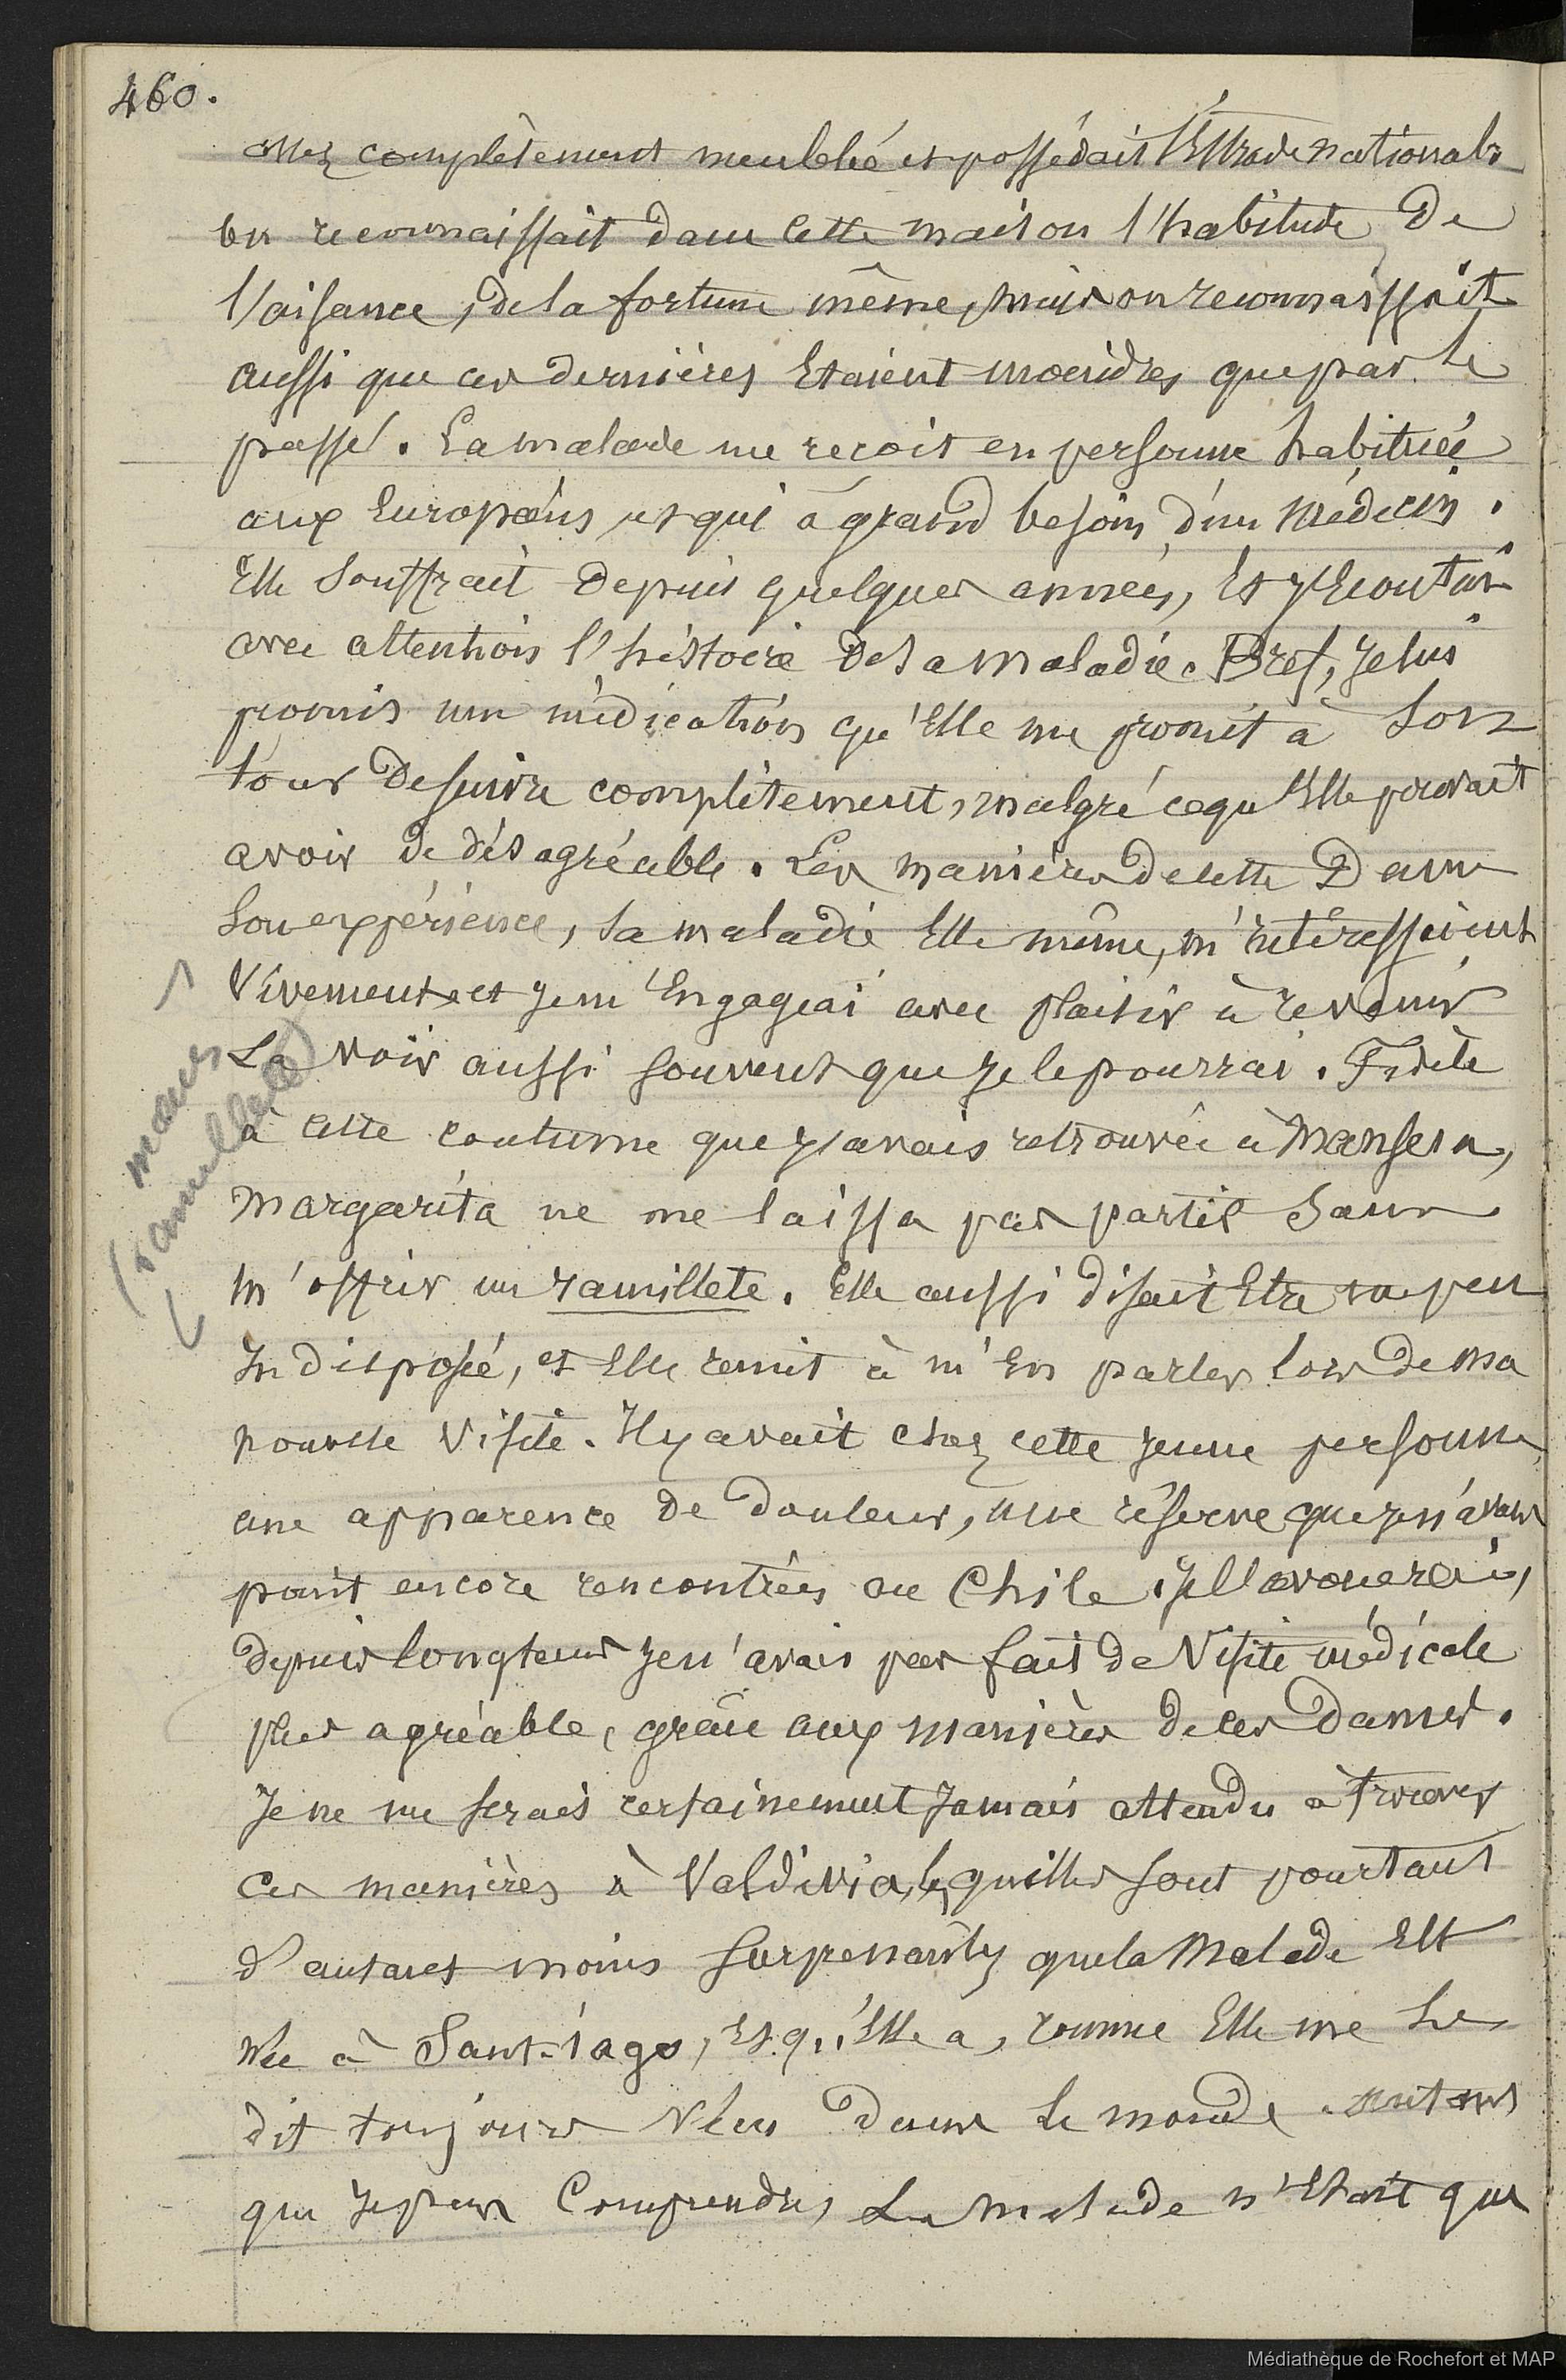 460.
assez complètement meublé et possédait l'Estrade nationale
on reconnaissait dans cette maison l'habitude de
l'aisance, de la fortune même, mais on reconnaissait
aussi que ces dernières Etaient moindres que par le
passé. La malade me reçoit en personne habituée
aux Européens et qui a grand besoin d'un Médecin.
Elle Souffrait depuis quelques années, Et j'Ecoutai
avec attention l'histoire de sa maladie. Bref, Je lui
promis une médication qu'Elle me promit à Son
tour de suivre complètement, malgré ce qu'Elle pouvait
avoir de désagréable. Les manières de cette Dame
Son expérience, Sa maladie Elle même, m'intéressaient
Vivement et Je m'Engageai avec plaisir à revenir
La voir aussi souvent que Je le pourrai. Fidèle
à cette coutume que J'avais retrouvée à Mansera,
Margarita ne me laissa pas partir Sans
m'offrir un ramillete. Elle aussi disait Etre un peu
Indisposée, et Elle remit à m'En parler lors de ma
nouvelle Visite. Il y avait chez cette Jeune personne
une apparence de douleur, une réserve que Je n'avais
point encore rencontrées au Chile. Je l'avouerai,
depuis longtems Je n'avais pas fait de Visite médicale
plus agréable, grâce aux manières de ces Dames.
Je ne me serais certainement Jamais attendu à trouver
ces manières à Valdivia, lesquelles sont pourtant
d'autant moins Surprenantes que la Malade Est
Née à Sant-iago, Et qu'Elle a, comme Elle me Le
dit toujours Vécu dans le monde. autant
que Je peux Comprendre, La Malade n'Etait que
mœurs
(ramillete)
Médiathèque de Rochefort et MAP